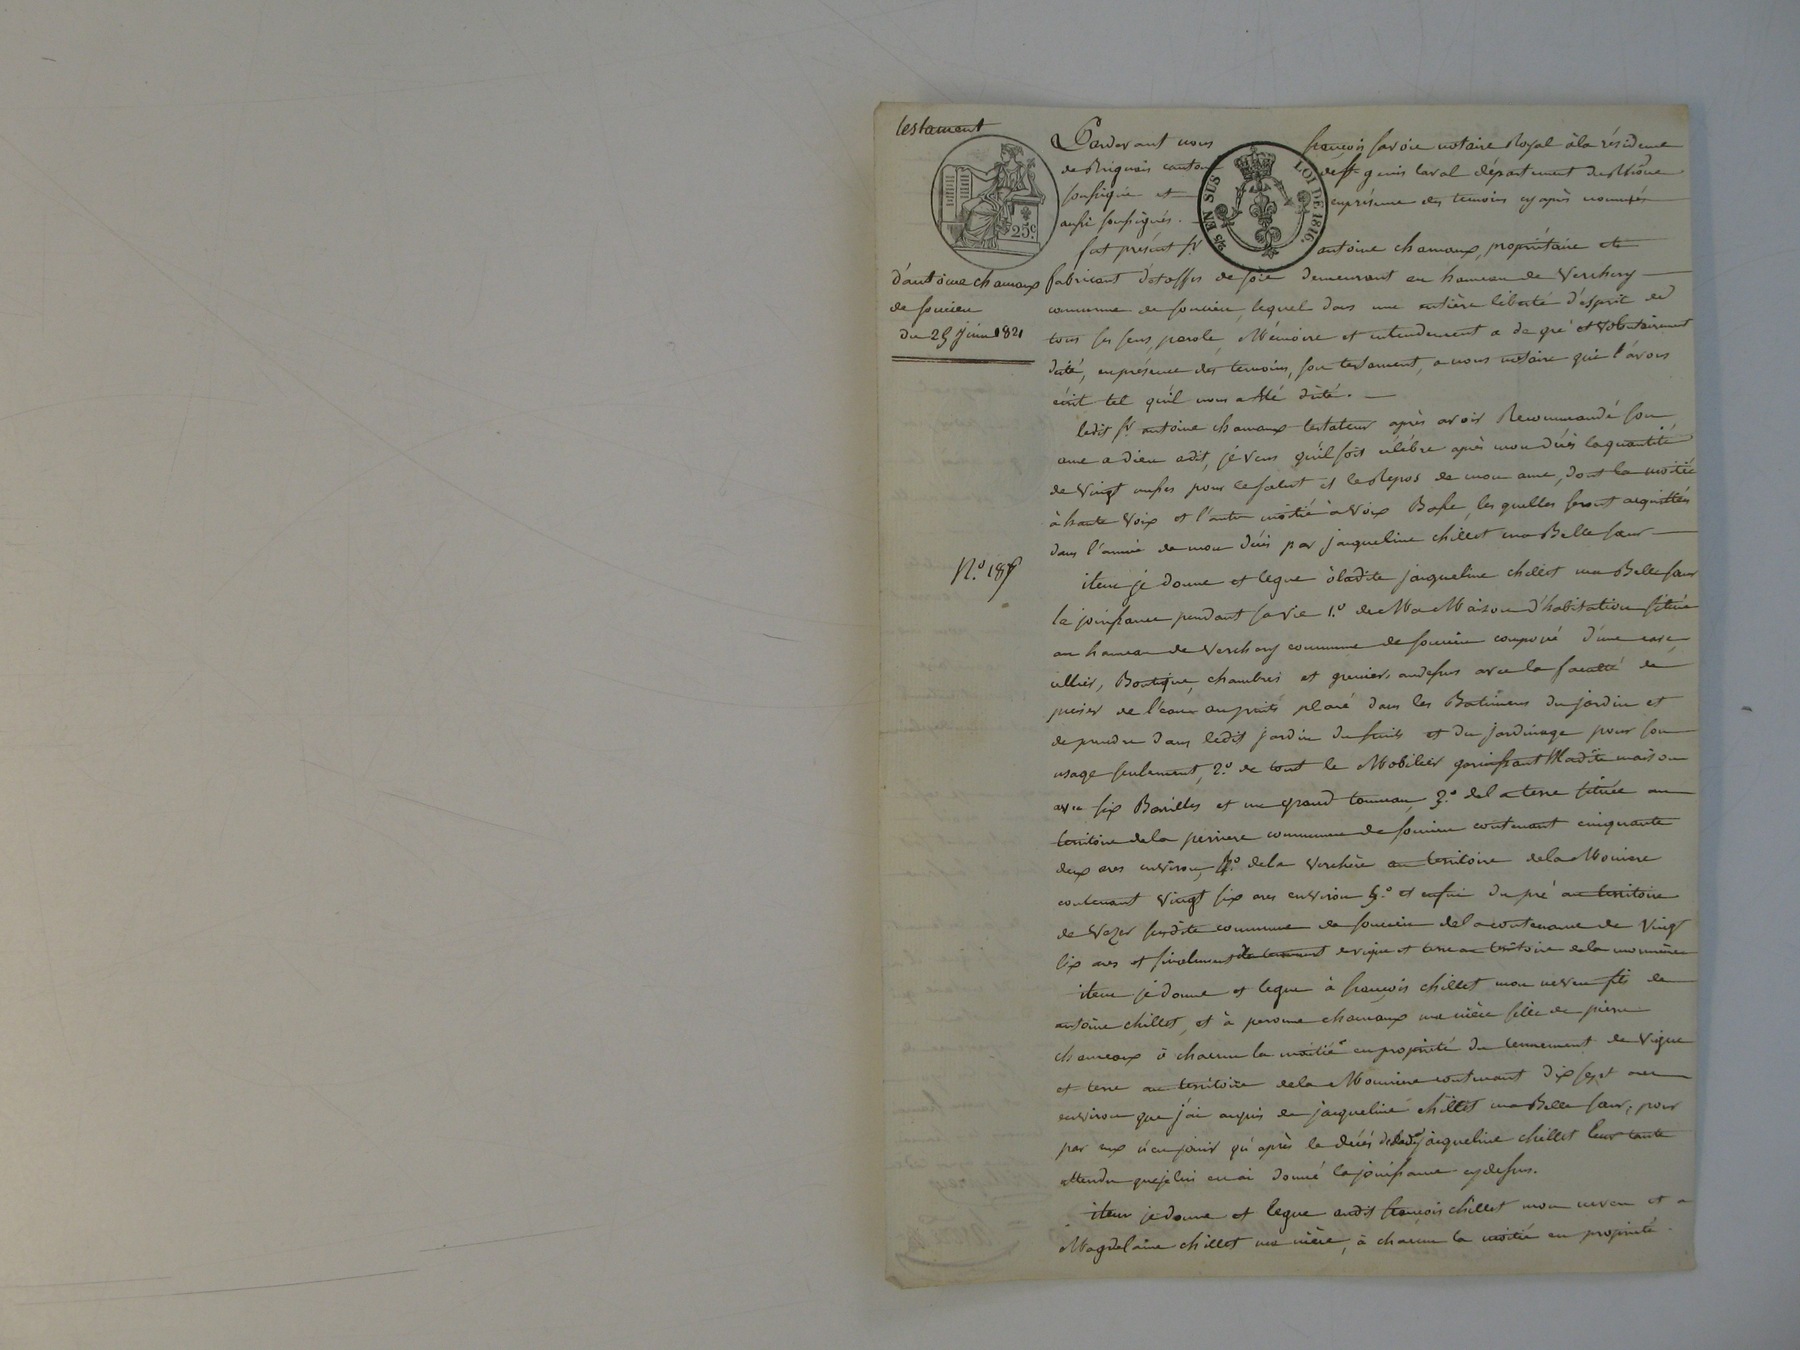 testament
25c.
2/5 EN SUS LOI DE 1816.
d'antoine chamaux
de soucieu
du 25 juin 1821
N.o 187
Pardevant nous françois savoie notaire Royal à la résidence
de Brignais canton de st genis laval département du Rhône
soussigné et en présence des temoins cy après nommés
aussi soussignés.
fut présent sr antoine chamaux, propriétaire et
fabricant d'étoffes de soie demeurant au hameau de Verchery
commune de soucieu, lequel dans une entière liberté d'esprit et
tous ses sens, parole, Mémoire et entendement a de gré et volontairement
dicté, en présence des temoins, son testament, a nous notaire qui l'avons
écrit tel qu'il nous a été dicté.
ledit sr antoine chamaux testateur après avoir Recommandé son
ame a dieu a dit, je veux qu'il soit célébre après mon décès la quantité
de Vingt messes pour le salut et le Repos de mon ame, dont la moitié
à haute voix et l'autre moitié a voix Basse, les quelles seront acquittées
dans l'année de mon décès par jacqueline chillet ma Belle sœur
item je donne et legue à ladite jacqueline chillet ma Belle sœur
la jouissance pendant sa vie 1.o de Ma Maison d'habitation située
au hameau de Verchery commune de soucieu composée d'une cave,
cellier, Boutique, chambres et greniers audessus avec la faculté de
puiser de l'eau au puits placé dans les Batimens du jardin et
de prendre dans ledit jardin du fruits et du jardinage pour son
usage seulement, 2.o de tout le Mobilier garnissant ladite maison
avec six Barilles et un grand tonneau 3.o de la terre située au
territoire de la perriere commune de soucieu contenant cinquante
deux ares environ, 4.o de la verchère au territoire de la Monniere
contenant vingt six ares environ 5.o et enfin du pré au territoire
de susdite commune de soucieu de la contenance de Vingt
six ares et finalement de vigne et terre au territoire de la monnière
item je donne et legue à françois chillet mon neveu fils de
antoine chillet, et à perome chamaux ma nièce fille de pierre
chamaux à chacun la moitié en propriété du tennement de Vigne
et terre au territoire de la Monniere contenant dix sept ares
environ que j'ai acquis de jacqueline chillet ma Belle sœur, pour
par eux n'en jouir qu'après le décès de ladite jacqueline chillet leur tante
attendu que je lui en ai donné la jouissance cy dessus.
item je donne et legue audit françois chillet mon neveu et a
Magdelaine chillet ma nièce, à chacun la moitié en propriété